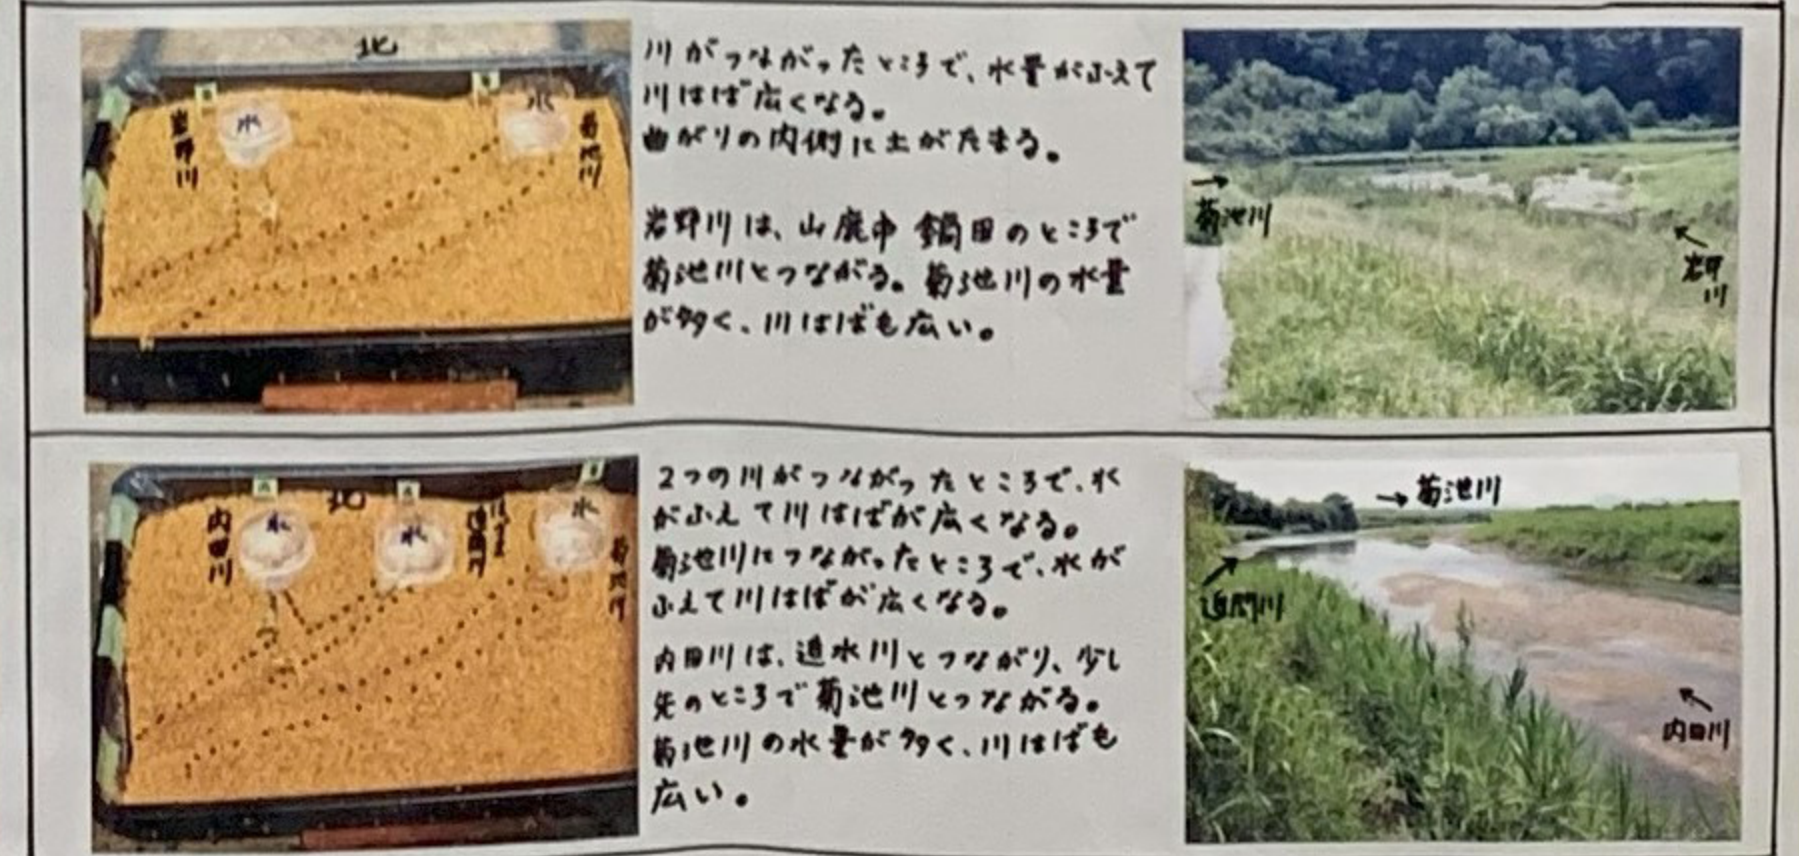 北
水
水
岩野川
菊池川
川がつながったところで、水量がふえて
川はば広くなる。
曲がりの内側に土がたまる。
岩野川は、山鹿市鍋田のところで
菊池川とつながる。菊池川の水量
が多く、川はばも広い。
→
菊池川
岩野川
北
水
水
水
内田川
迫間川
菊池川
2つの川がつながったところで、水
がふえて川はばが広くなる。
菊池川につながったところで、水が
ふえて川はばが広くなる。
内田川は、迫水川とつながり、少し
先のところで菊池川とつながる。
菊池川の水量が多く、川はばも
広い。
→菊池川
迫間川
内田川